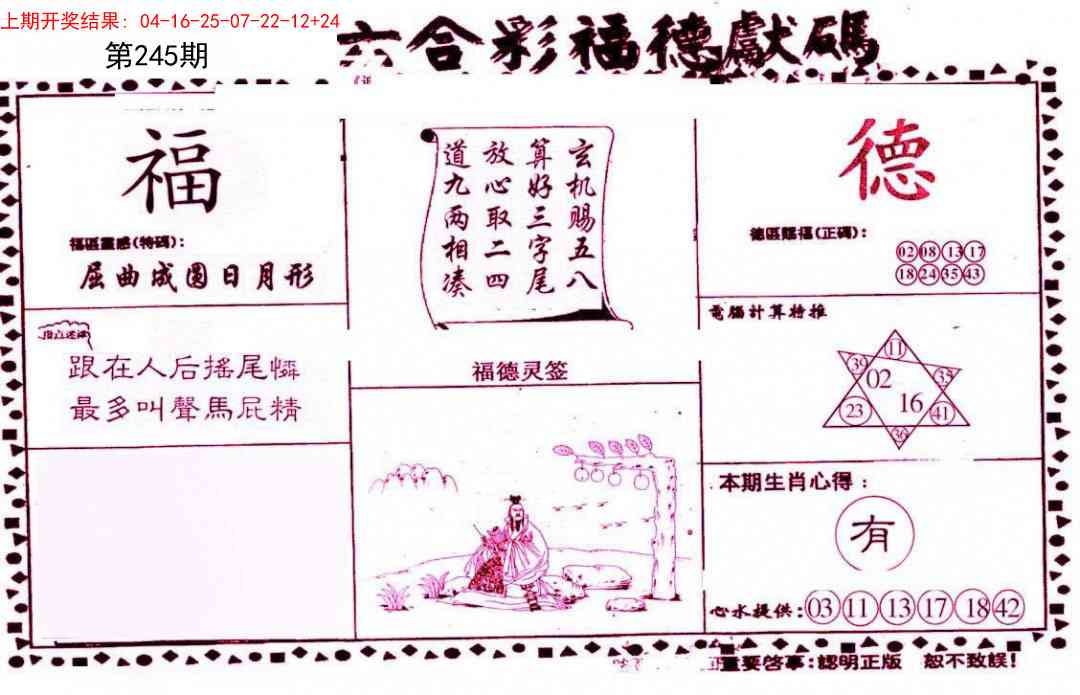 上期开奖结果：04-16-25-07-22-12+24
第245期
六合彩福德獻碼
福
福區靈感(特碼)：
屈曲成圆日月形
跟在人后搖尾憐
最多叫聲馬屁精
玄机赐五八
算好三字尾
放心取二四
道九两相凑
福德灵签
德
德區賜福(正碼)：
02 08 13 17
18 24 35 43
電腦計算特推
11
39 02 35
23 16 41
36
本期生肖心得：
有
心水提供：03 11 13 17 18 42
重要啓事：認明正版 恕不致誤！